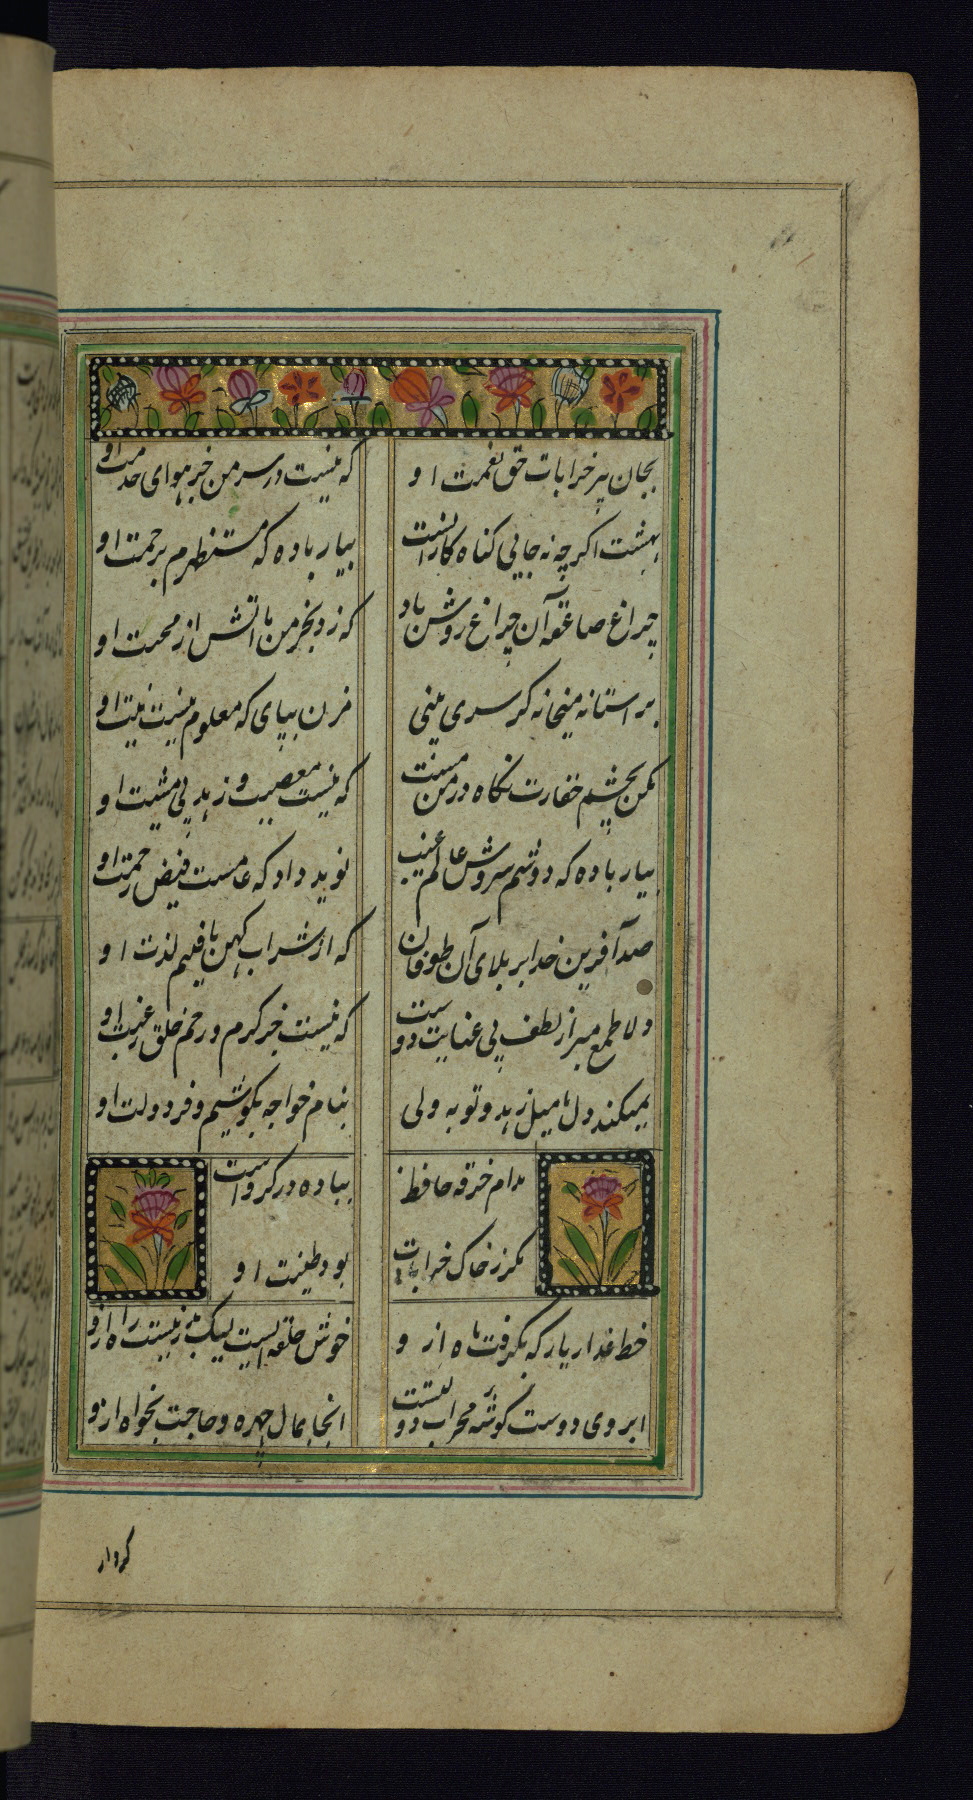 بجان پیر خرابات حق نعمت او که نیست در سر من جز هوای خدمت او
بهشت اکر چه نه جایی کناه کارانست بیار باده که مستظهرم برحمت او
چراغ صاعقه آن چراغ روشن باد که زد بخرمن ما اتش از محبت او
بر استانه میخانه کر سری بینی مزن بپای که معلوم نیست نیت او
مکن بچشم حقارت نکاه در من مست که نیست معصیت و زهد بی مشیت او
بیار باده که دوشم سروش عالم غیب نوید داد که عامست فیض رحمت او
صد آفرین خدا بر بلای آن طوفان که از شراب کهن یافتیم لذت او
دلا طمع مبر از لطف بی عنایت دوست که نیست جز کرم و رحم خلق غربت او
نمیکند دل ما میل زهد و توبه ولی بنام خواجه بکوشیم و فر دولت او
مدام خرقه حافظ بباده در کروست
مکر ز خاک خرابات بود طینت او
خط عذار یار که بکرفت ماه ازو خوش حلقه ایست لیک بدر نیست راه ازو
ابروی دوست کوشه محراب دولتست انجا بمال چهره و حاجت بخواه ازو
کردار